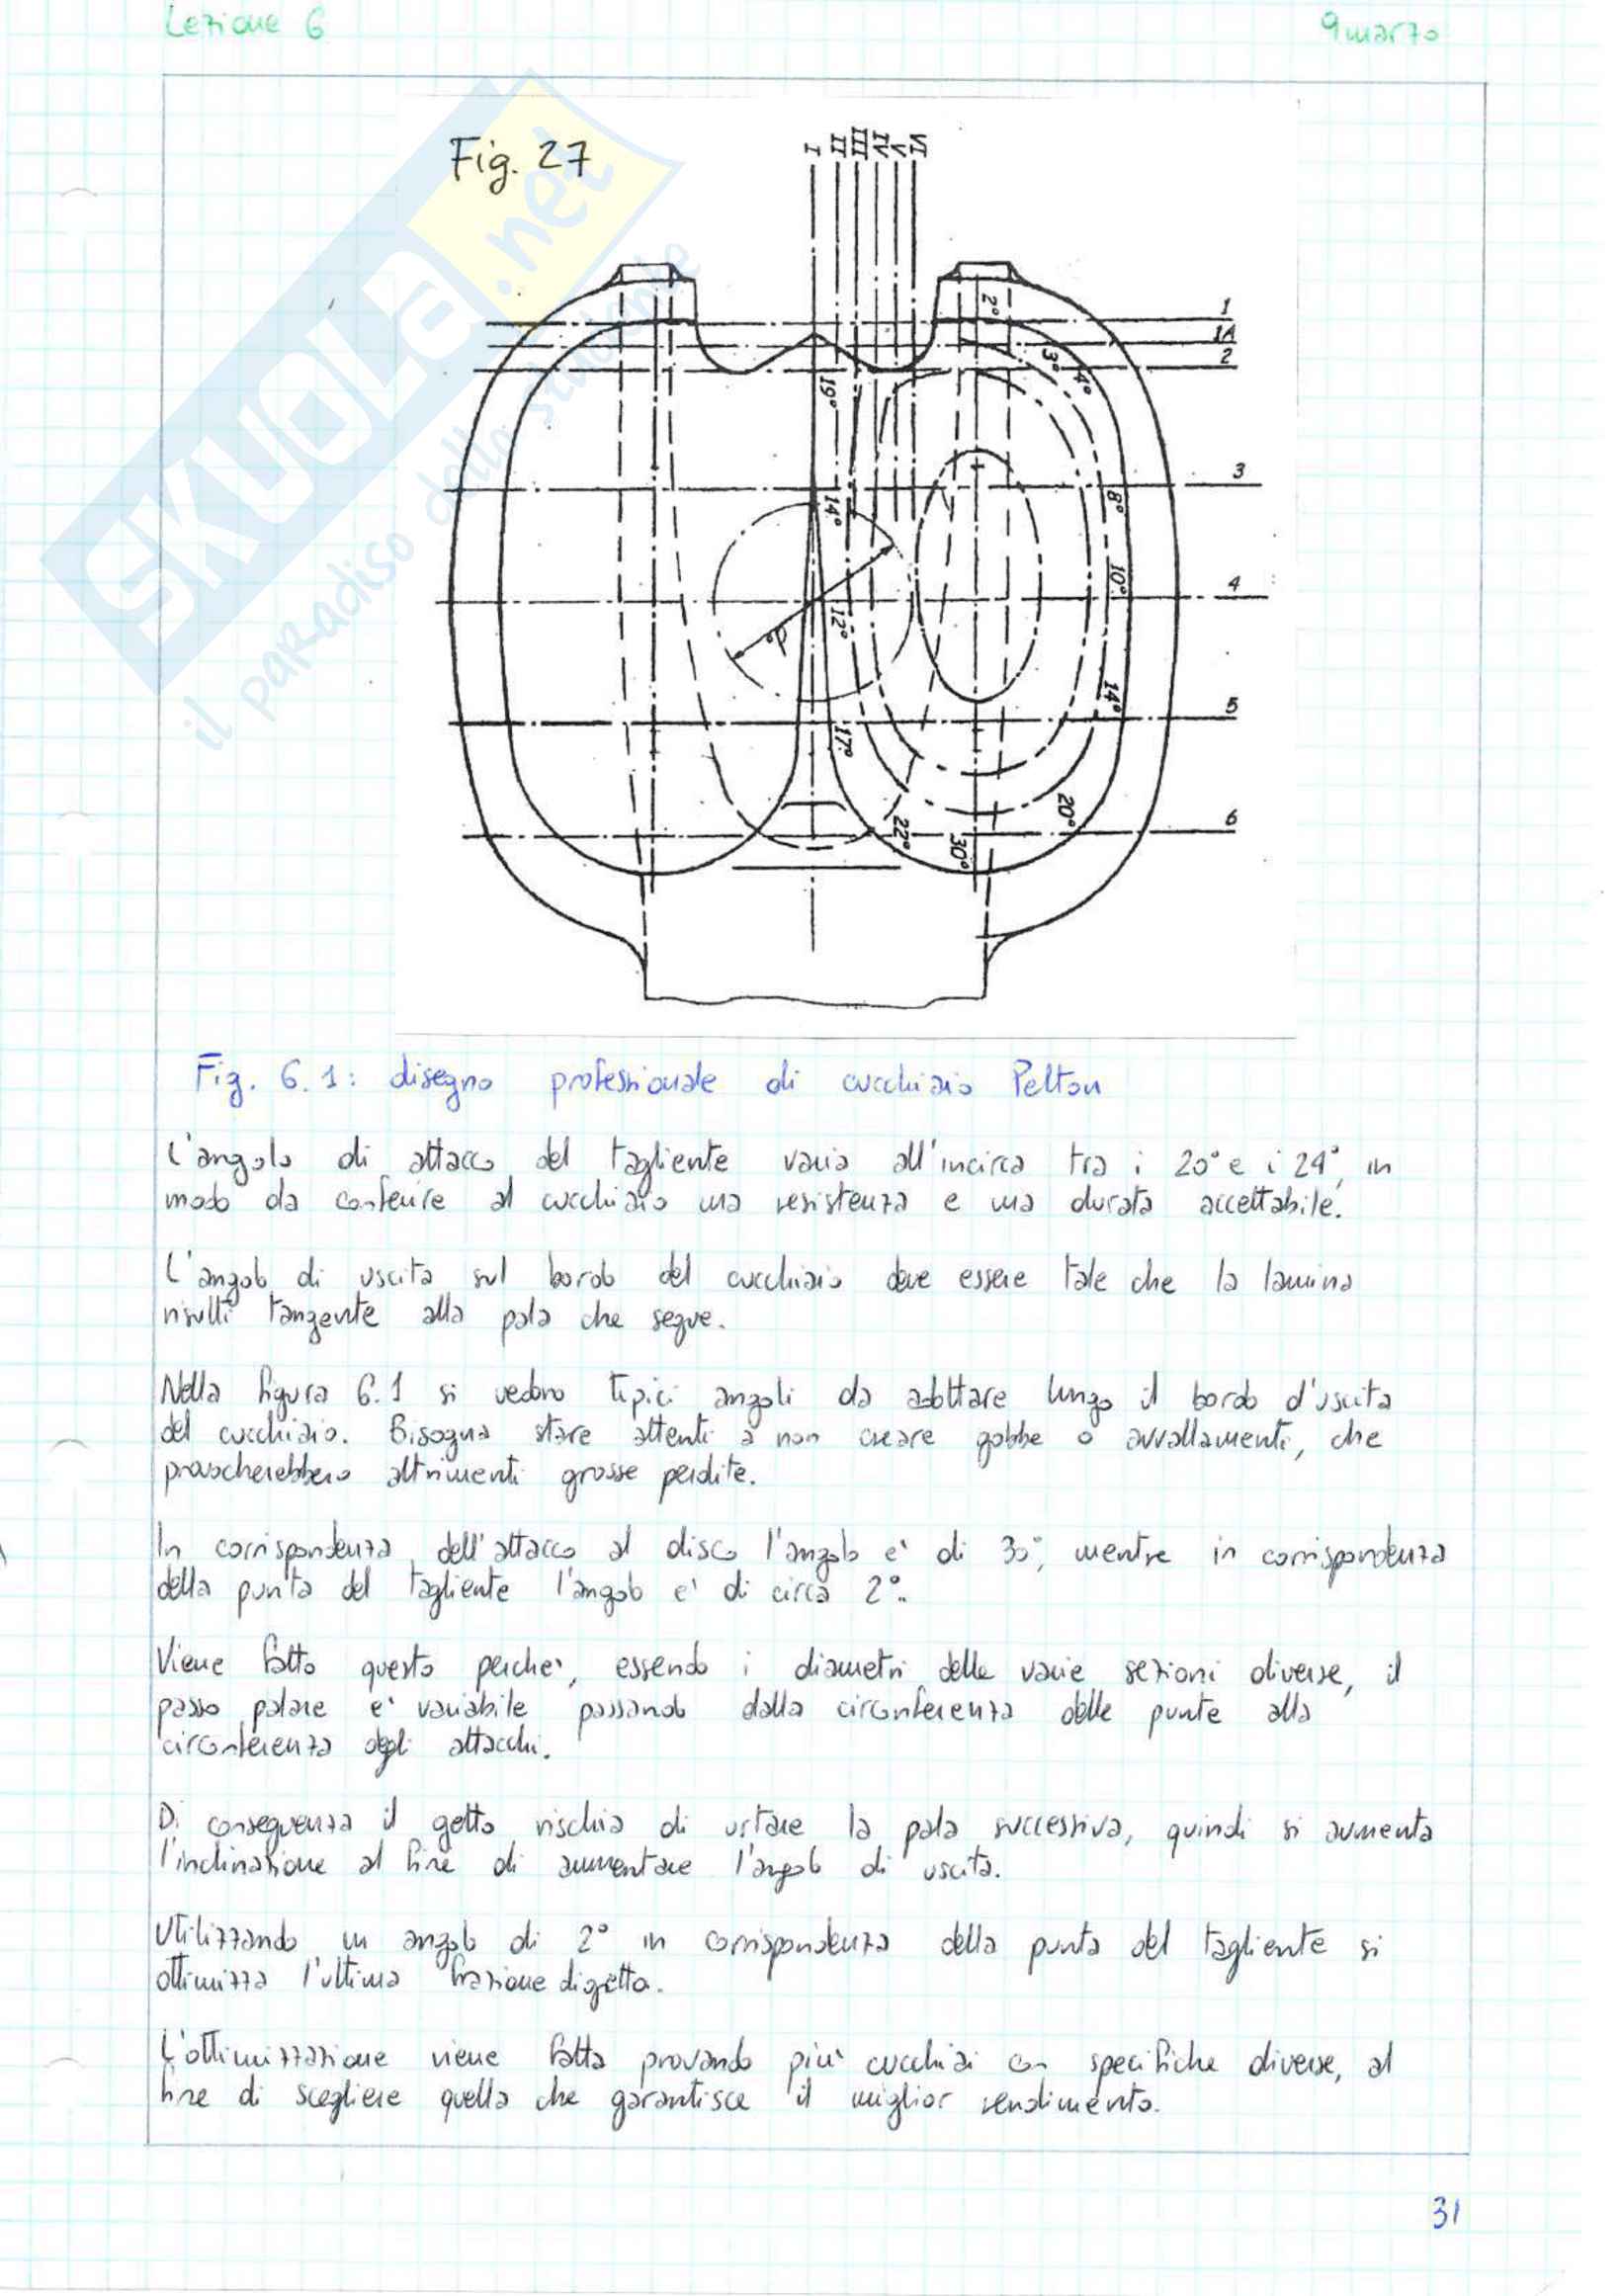 Lezione 6
9 marzo
Fig. 27
I II III IV V VI
1
1A
2
3
4
5
6
2°
3°
4°
8°
10°
14°
20°
30°
22°
17°
12°
14°
19°
d₀
SKUOLA.net
il paradiso dello studente
Fig. 6.1: disegno professionale di cucchiaio Pelton
L'angolo di attacco del tagliente varia all'incirca tra i 20° e i 24°, in
modo da conferire al cucchiaio una resistenza e una durata accettabile.
L'angolo di uscita sul bordo del cucchiaio deve essere tale che la lamina
risulti tangente alla pala che segue.
Nella figura 6.1 si vedono tipici angoli da adottare lungo il bordo d'uscita
del cucchiaio. Bisogna stare attenti a non creare gobbe o avvallamenti, che
provocherebbero altrimenti grosse perdite.
In corrispondenza dell'attacco al disco l'angolo e' di 30°, mentre in corrispondenza
della punta del tagliente l'angolo e' di circa 2°.
Viene fatto questo perche', essendo i diametri delle varie sezioni diverse, il
passo palare e' variabile passando dalla circonferenza delle punte alla
circonferenza degli attacchi.
Di conseguenza il getto rischia di urtare la pala successiva, quindi si aumenta
l'inclinazione al fine di aumentare l'angolo di uscita.
Utilizzando un angolo di 2° in corrispondenza della punta del tagliente si
ottimizza l'ultima frazione di getto.
L'ottimizzazione viene fatta provando piu' cucchiai con specifiche diverse, al
fine di scegliere quella che garantisce il miglior rendimento.
31